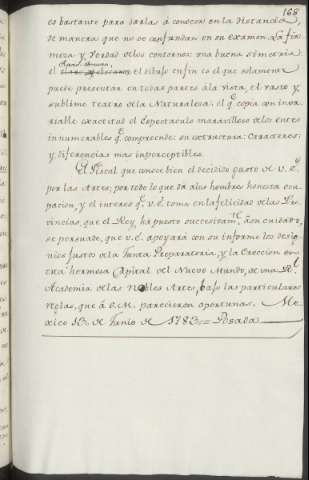 168
es bastante para darlas á conocer en la distancia,
de manera que no se confundan en su examen. La fir
meza, y verdad de los contornos: una buena simetria:
el claro, y obscuro, el dibujo enfin es el que solamente
puede presentar en todas partes á la vista, el vasto, y
sublime teatro de la Naturaleza: el q.e copia con inva
riable exactitud el Espectaculo maravilloso de los entes
innumerables q.e comprehende: su estructura: Caracteres:
y diferencias mas imperceptibles.
El Fiscal que conoce bien el decidido gusto de V.E.
por las Artes; por todo lo que dá alos hombres honesta ocu
pacion, y el interes q.e V.E. toma en la felicidad de las Pro
vincias, que el Rey, ha puesto succesivam.te á su cuidado,
se persuade, que V.E. apoyará con su informe los desig
nios justos de la Junta Preparatoria, y la Ereccion en
esta hermosa Capital del Nuevo Mundo, de una R.l
Academia de las Nobles Artes, bajo las particulares
reglas, que á S.M. parecieron oportunas. Me
xico 13. de Junio de 1783. = Posada